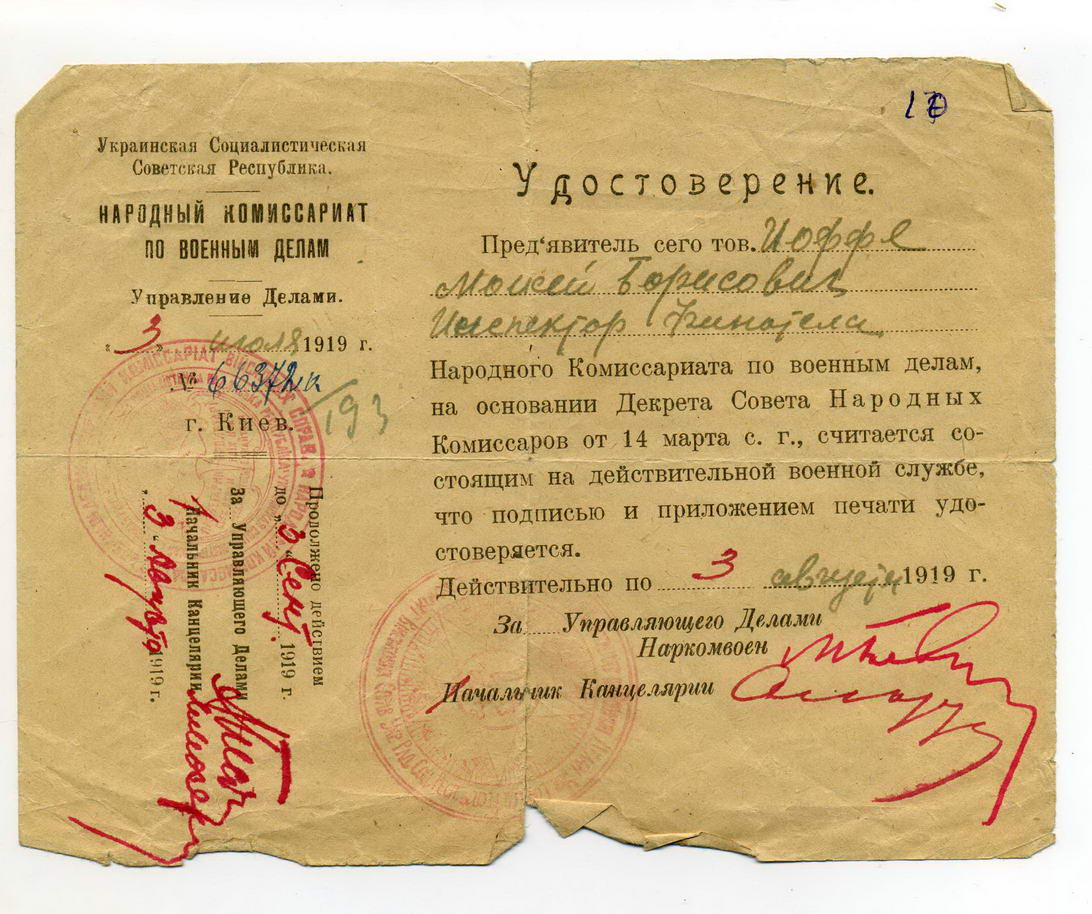 Украинская Социалистическая
Советская Республика.
НАРОДНЫЙ КОМИССАРИАТ
ПО ВОЕННЫМ ДЕЛАМ
Управление Делами.
„3” июля 1919 г.
№ 66372
193
г. Киев.
Продолжено действием
до „3” Сент. 1919 г.
За Управляющего Делами
Начальник Канцелярии
„3” Августа 1919 г.
Удостоверение.
Пред‘явитель сего тов. Иоффе
Моисей Борисович
Инспектор Финотдела
Народного Комиссариата по военным делам,
на основании Декрета Совета Народных
Комиссаров от 14 марта с. г., считается со-
стоящим на действительной военной службе,
что подписью и приложением печати удо-
стоверяется.
Действительно по 3 августа 1919 г.
За Управляющего Делами
Наркомвоен
Начальник Канцелярии